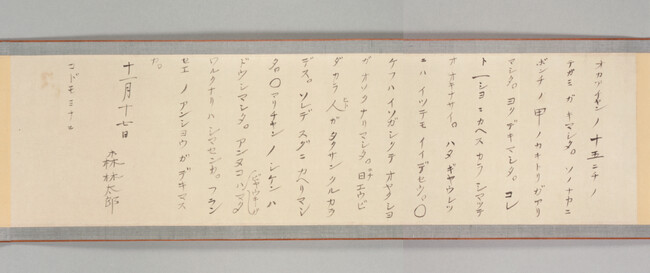 オカアチヤン ノ 十五ニチ ノ
テガミ ガ キマシタ。ソノ ナカニ
ボンチ ノ 甲 ノ カキトリ ガ アリ
マシタ。ヨク デキマシタ。コレ
ト 一シヨニ カヘス カラ シマツテ
オ オキナサイ。ハタ ギヤウレツ
ニハ イツテモ イイデセウ。〇
ケフハ イソガシクテ オヤクシヨ
ガ オソクナリマシタ。日エウビ
ダカラ 人ガ タクサン クルカラ
デス。ソレデ スグニ カヘリマシ
タ。〇マリチヤン ノ シケン ハ
ドウシマシタ。アンヌコ ハ マタ
ビヤウキガ
ワルクナリハ シマセンカ。フラン
セエ ノ アンシヨウ ガ デキマス
カ。
十一月十七日
森林太郎
コドモミナニ